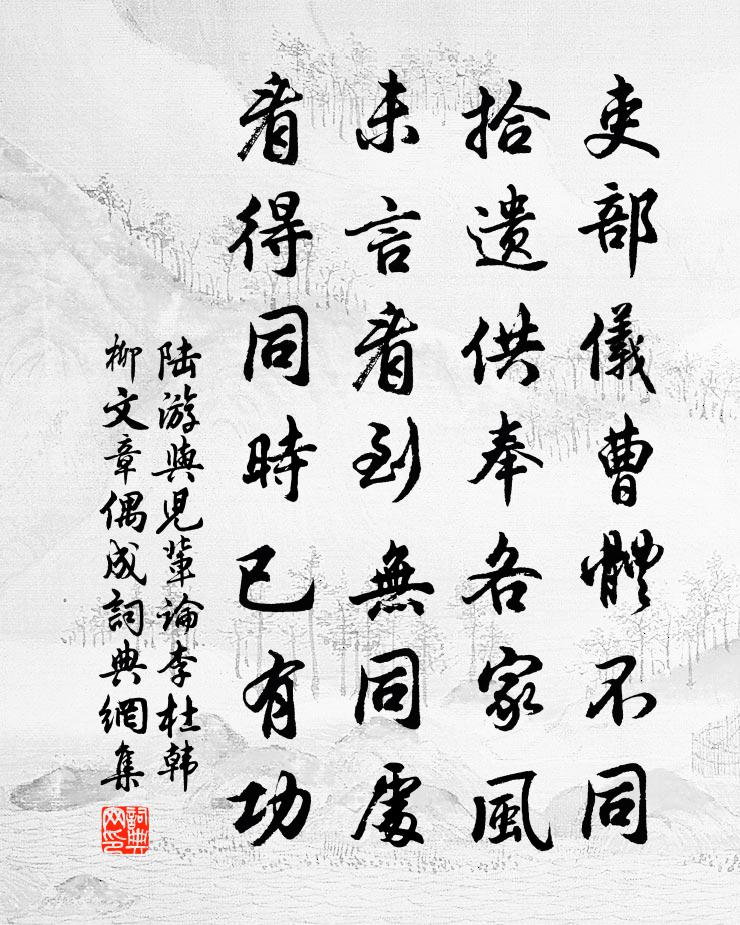 吏部儀曹體不同
拾遺供奉各家風
未言看到無同處
看得同時已有功
陸游與兒輩論李杜韓
柳文章偶成詞典網集
詞典
网印